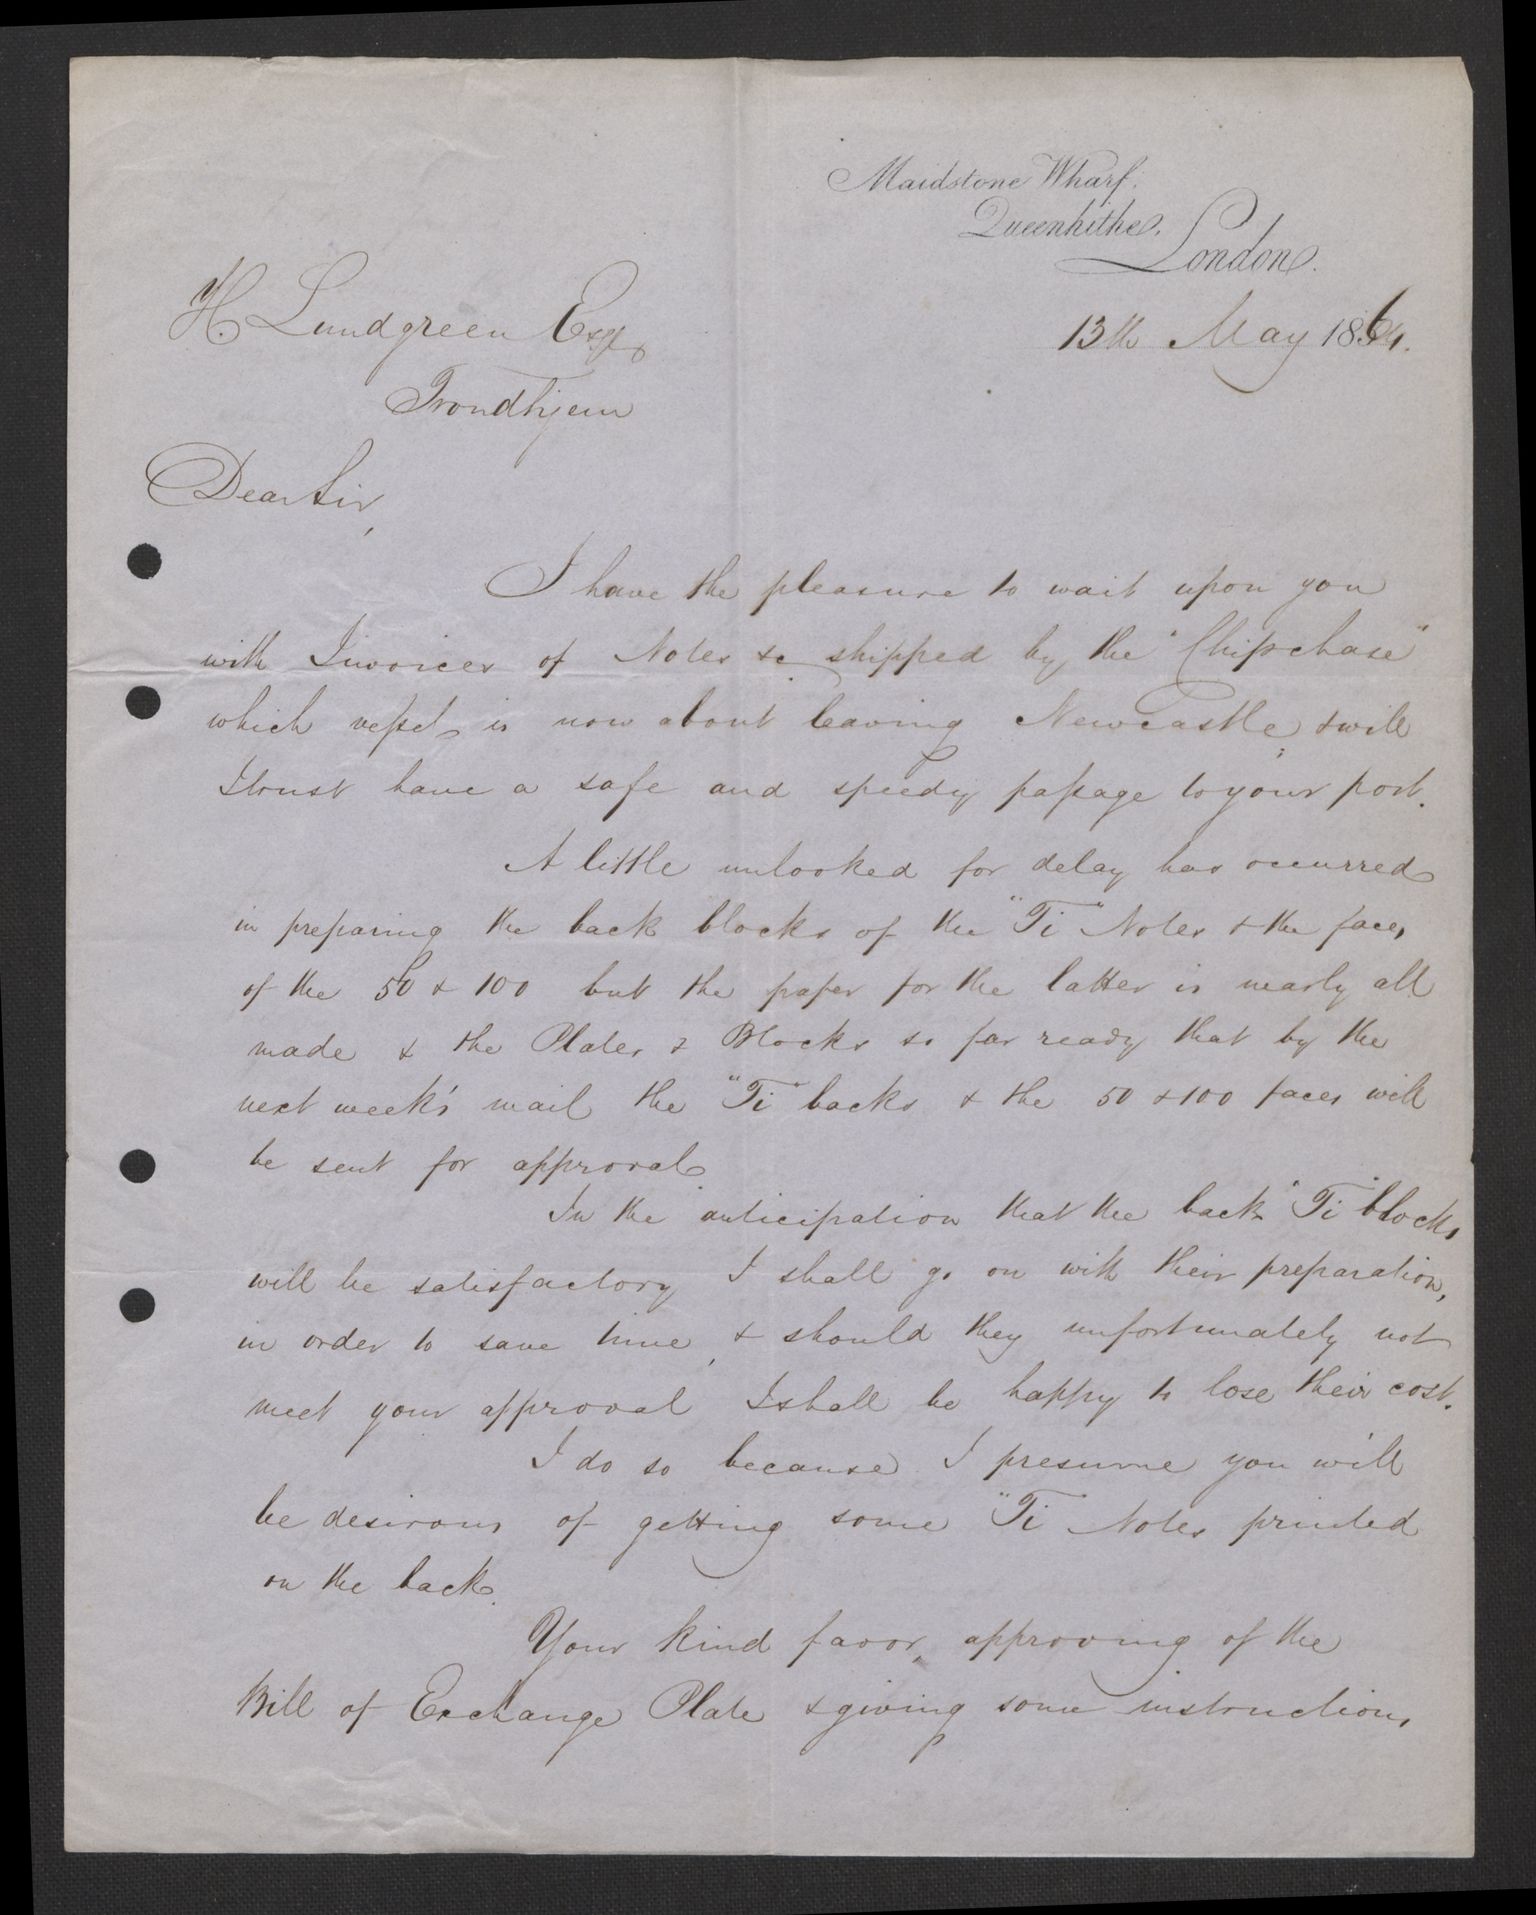 Maidstone Wharf.
Queenhithe,
London.
13th May 1864.
H. Lundgreen Esqr
Trondhjem
Dear Sir,
I have the pleasure to wait upon you
with Invoices of Notes &c shipped by the "Chipchase"
which vessel is now about leaving Newcastle, & will
I trust have a safe and speedy passage to your port.
A little unlooked for delay has occurred
in preparing the back blocks of the "Ti" Notes & the faces
of the 50 & 100 but the paper for the latter is nearly all
made & the Plates & Blocks so far ready that by the
next week's mail the "Ti" backs & the 50 & 100 faces will
be sent for approval.
In the anticipation that the back "Ti" blocks
will be satisfactory I shall go on with their preparation,
in order to save time, & should they unfortunately not
meet your approval I shall be happy to lose their cost.
I do so because I presume you will
be desirous of getting some "Ti" Notes printed
on the back.
Your kind favor, approving of the
Bill of Exchange Plate & giving some instructions